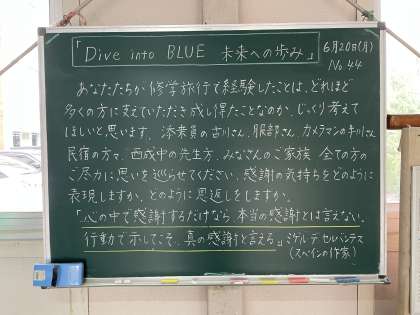 「Dive into BLUE 未来への歩み」
6月20日(月)
No.44
あなたたちが修学旅行で経験したことは、どれほど
多くの方に支えていただき成し得たことなのか、じっくり考えて
ほしいと思います。添乗員の吉川さん、服部さん、カメラマンの手川さん
民宿の方々、西成中の先生方、みなさんのご家族、全ての方の
ご尽力に思いを巡らせてください。感謝の気持ちをどのように
表現しますか、どのように恩返しをしますか。
「心の中で感謝するだけなら、本当の感謝とは言えない。
行動で示してこそ、真の感謝と言える」ミゲル・デ・セルバンテス
(スペインの作家)